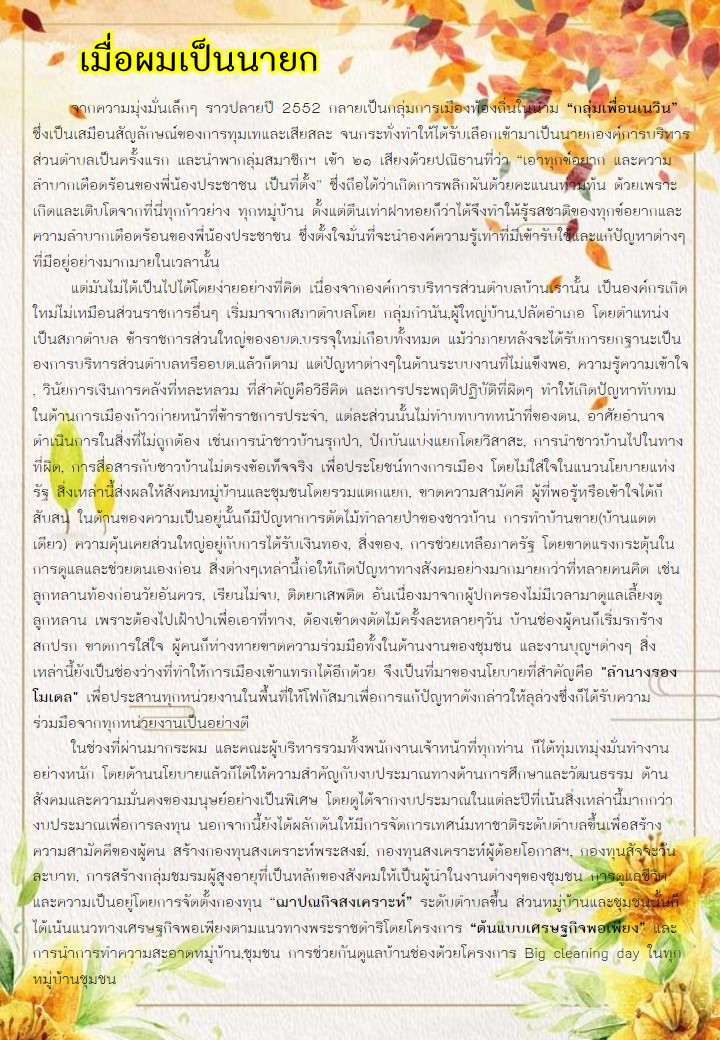 เมื่อผมเป็นนายก
จากความมุ่งมั่นเล็กๆ ราวปลายปี 2552 กลายเป็นกลุ่มการเมืองท้องถิ่นในนาม “กลุ่มเพื่อนเนวิน”
ซึ่งเป็นเสมือนสัญลักษณ์ของการทุ่มเทและเสียสละ จนกระทั่งทำให้ได้รับเลือกเข้ามาเป็นนายกองค์การบริหาร
ส่วนตำบลเป็นครั้งแรก และนำพากลุ่มสมาชิกฯ เข้า ๒๑ เสียงด้วยปณิธานที่ว่า “เอาทุกข์อยาก และความ
ลำบากเดือดร้อนของพี่น้องประชาชน เป็นที่ตั้ง” ซึ่งถือได้ว่าเกิดการพลิกผันด้วยคะแนนท่วมท้น ด้วยเพราะ
เกิดและเติบโตจากที่นี่ทุกก้าวย่าง ทุกหมู่บ้าน ตั้งแต่ตีนเท่าฝาหอยก็ว่าได้จึงทำให้รู้รสชาติของทุกข์อยากและ
ความลำบากเดือดร้อนของพี่น้องประชาชน ซึ่งตั้งใจมั่นที่จะนำองค์ความรู้เท่าที่มีเข้ารับใช้และแก้ปัญหาต่างๆ
ที่มีอยู่อย่างมากมายในเวลานั้น
แต่มันไม่ได้เป็นไปได้โดยง่ายอย่างที่คิด เนื่องจากองค์การบริหารส่วนตำบลบ้านเรานั้น เป็นองค์กรเกิด
ใหม่ไม่เหมือนส่วนราชการอื่นๆ เริ่มมาจากสภาตำบลโดย กลุ่มกำนัน,ผู้ใหญ่บ้าน,ปลัดอำเภอ โดยตำแหน่ง
เป็นสภาตำบล ข้าราชการส่วนใหญ่ของอบต.บรรจุใหม่เกือบทั้งหมด แม้ว่าภายหลังจะได้รับการยกฐานะเป็น
องการบริหารส่วนตำบลหรืออบต.แล้วก็ตาม แต่ปัญหาต่างๆในด้านระบบงานที่ไม่แข็งพอ, ความรู้ความเข้าใจ
, วินัยการเงินการคลังที่หละหลวม ที่สำคัญคือวิธีคิด และการประพฤติปฏิบัติที่ผิดๆ ทำให้เกิดปัญหาทับทม
ในด้านการเมืองก้าวก่ายหน้าที่ข้าราชการประจำ, แต่ละส่วนนั้นไม่ทำบทบาทหน้าที่ของตน, อาศัยอำนาจ
ดำเนินการในสิ่งที่ไม่ถูกต้อง เช่นการนำชาวบ้านรุกป่า, ปักบันแบ่งแยกโดยวิสาสะ, การนำชาวบ้านไปในทาง
ที่ผิด, การสื่อสารกับชาวบ้านไม่ตรงข้อเท็จจริง เพื่อประโยชน์ทางการเมือง โดยไม่ใส่ใจในแนวนโยบายแห่ง
รัฐ สิ่งเหล่านี้ส่งผลให้สังคมหมู่บ้านและชุมชนโดยรวมแตกแยก, ขาดความสามัคคี ผู้ที่พอรู้หรือเข้าใจได้ก็
สับสน ในด้านของความเป็นอยู่นั้นก็มีปัญหาการตัดไม้ทำลายป่าของชาวบ้าน การทำบ้านขาย(บ้านแดด
เดียว) ความคุ้นเคยส่วนใหญ่อยู่กับการได้รับเงินทอง, สิ่งของ, การช่วยเหลือภาครัฐ โดยขาดแรงกระตุ้นใน
การดูแลและช่วยตนเองก่อน สิ่งต่างๆเหล่านี้ก่อให้เกิดปัญหาทางสังคมอย่างมากมายกว่าที่หลายคนคิด เช่น
ลูกหลานท้องก่อนวัยอันควร, เรียนไม่จบ, ติดยาเสพติด อันเนื่องมาจากผู้ปกครองไม่มีเวลามาดูแลเลี้ยงดู
ลูกหลาน เพราะต้องไปเฝ้าป่าเพื่อเอาที่ทาง, ต้องเข้าดงตัดไม้ครั้งละหลายๆวัน บ้านช่องผู้คนก็เริ่มรกร้าง
สกปรก ขาดการใส่ใจ ผู้คนก็ห่างหายขาดความร่วมมือทั้งในด้านงานของชุมชน และงานบุญฯต่างๆ สิ่ง
เหล่านี้ยังเป็นช่องว่างที่ทำให้การเมืองเข้าแทรกได้อีกด้วย จึงเป็นที่มาของนโยบายที่สำคัญคือ "ลำนางรอง
โมเดล" เพื่อประสานทุกหน่วยงานในพื้นที่ให้โฟกัสมาเพื่อการแก้ปัญหาดังกล่าวให้ลุล่วงซึ่งก็ได้รับความ
ร่วมมือจากทุกหน่วยงานเป็นอย่างดี
ในช่วงที่ผ่านมากระผม และคณะผู้บริหารรวมทั้งพนักงานเจ้าหน้าที่ทุกท่าน ก็ได้ทุ่มเทมุ่งมั่นทำงาน
อย่างหนัก โดยด้านนโยบายแล้วก็ได้ให้ความสำคัญกับงบประมาณทางด้านการศึกษาและวัฒนธรรม ด้าน
สังคมและความมั่นคงของมนุษย์อย่างเป็นพิเศษ โดยดูได้จากงบประมาณในแต่ละปีที่เน้นสิ่งเหล่านี้มากกว่า
งบประมาณเพื่อการลงทุน นอกจากนี้ยังได้ผลักดันให้มีการจัดการเทศน์มหาชาติระดับตำบลขึ้นเพื่อสร้าง
ความสามัคคีของผู้คน สร้างกองทุนสงเคราะห์พระสงฆ์, กองทุนสงเคราะห์ผู้ด้อยโอกาสฯ, กองทุนสัจจะวัน
ละบาท, การสร้างกลุ่มชมรมผู้สูงอายุที่เป็นหลักของสังคมให้เป็นผู้นำในงานต่างๆของชุมชน การดูแลชีวิต
และความเป็นอยู่โดยการจัดตั้งกองทุน “ฌาปณกิจสงเคราะห์” ระดับตำบลขึ้น ส่วนหมู่บ้านและชุมชนนั้นก็
ได้เน้นแนวทางเศรษฐกิจพอเพียงตามแนวทางพระราชดำริโดยโครงการ “ต้นแบบเศรษฐกิจพอเพียง” และ
การนำการทำความสะอาดหมู่บ้าน,ชุมชน การช่วยกันดูแลบ้านช่องด้วยโครงการ Big cleaning day ในทุก
หมู่บ้านชุมชน